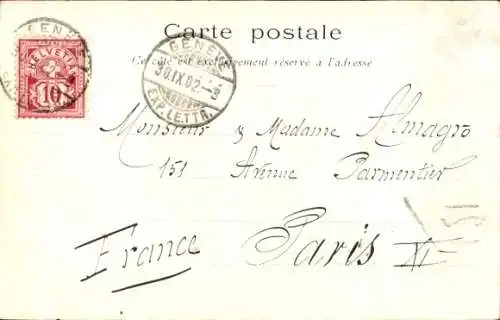 Carte postale
Ce côté est exclusivement réservé à l'adresse
GENÈVE
HELVETIA
10
GENÈVE
30.IX.02-3
EXP. LETTR.
Monsieur & Madame Almagro
151 Avenue Parmentier
France Paris XI